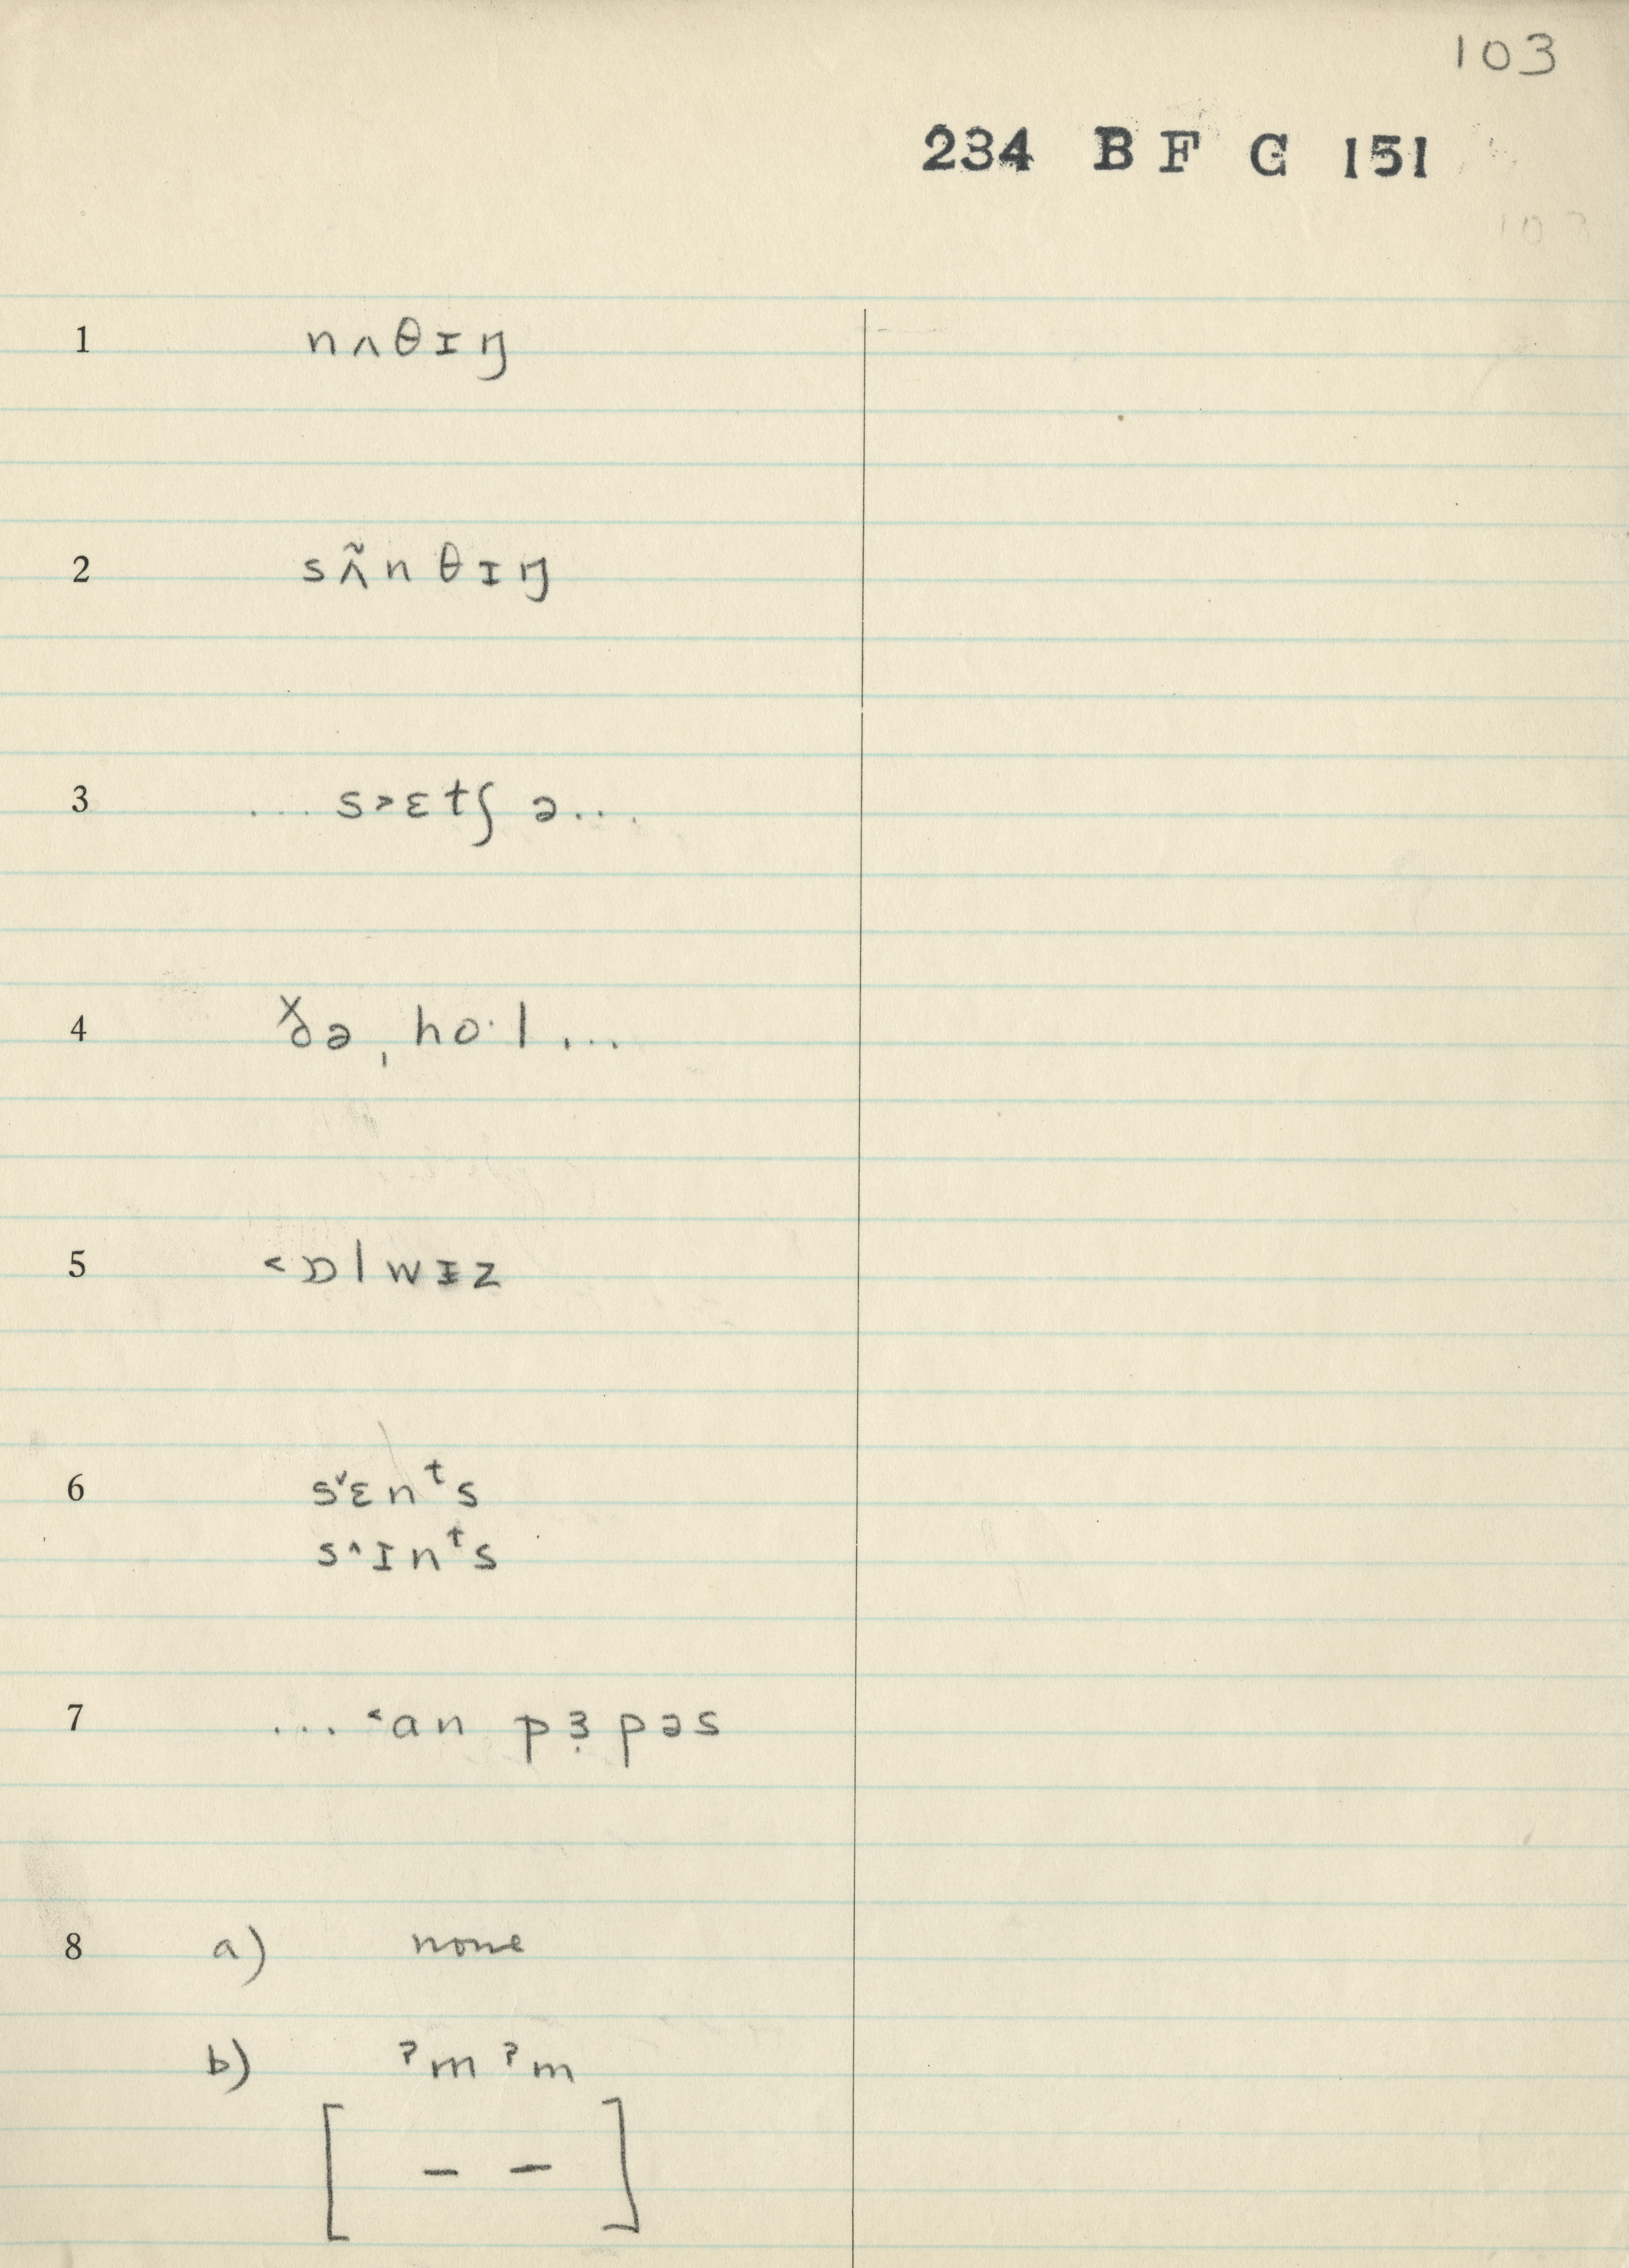 103
234 B F G 151
103
1 nʌθɪŋ
2 sʌ̃n θɪŋ
3 ... s˃ɛtʃ ə...
4 ɣ̌ðə ˌho·l ...
5 ˂ɒlwɪz
6 s˅ɛnᵗs
s˄ɪnᵗs
7 ... ˂an pɜ̣pəs
8 a) none
b) ˀmˀm
[ – – ]